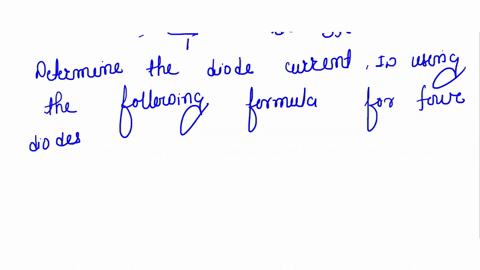 Determine the diode current, ID using
the following formula for four
diodes